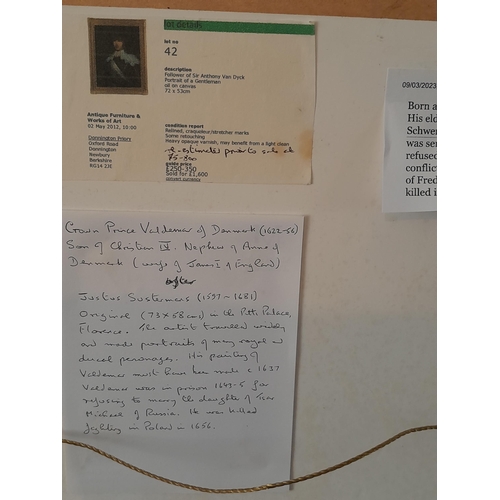 lot details
lot no
42
description
Follower of Sir Anthony Van Dyck
Portrait of a Gentleman
oil on canvas
72 x 53cm
Antique Furniture &
Works of Art
02 May 2012, 10:00
Donnington Priory
Oxford Road
Donnington
Newbury
Berkshire
RG14 2JE
condition report
Relined, craquelure/stretcher marks
Some retouching
Heavy opaque varnish, may benefit from a light clean
re-estimated prior to sale at
guide price
£250-350
Sold for £1,600
09/03/2023
Born a
His eld
Schwer
was ser
refused
conflic
of Fred
killed i
Crown Prince Valdemar of Denmark (1622-56)
Son of Christian IV. Nephew of Anne of
Denmark (wife of James I of England)
after
Justus Sustermans (1597-1681)
Original (73x58cm) in the Pitti Palace,
Florence. The artist travelled widely
and made portraits of many royal &
ducal personages. His painting of
Valdemar must have been made c 1637
Valdemar was in prison 1643-5 for
refusing to marry the daughter of Tsar
Michael of Russia. He was killed
fighting in Poland in 1656.